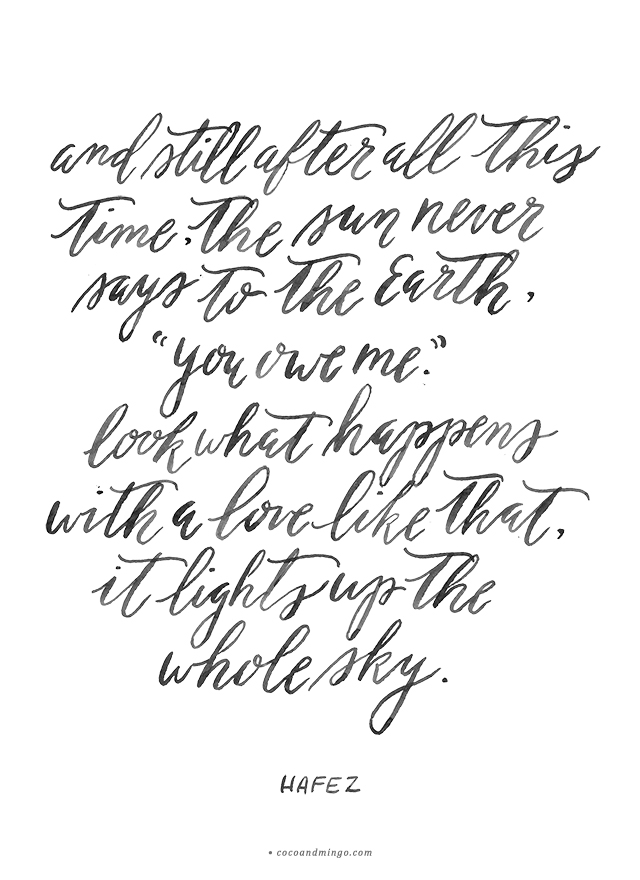 and still after all this
time, the sun never
says to the Earth,
"you owe me."
look what happens
with a love like that,
it lights up the
whole sky.
HAFEZ
• cocoandmingo.com